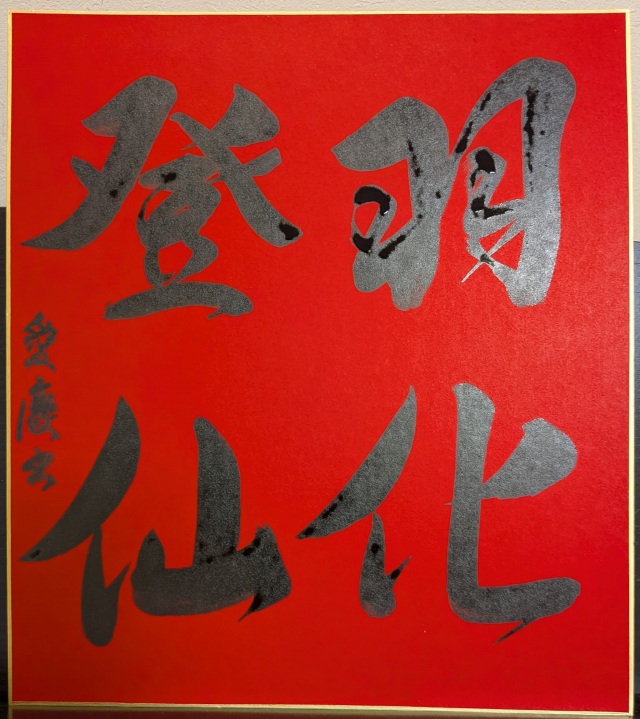 羽化
登仙